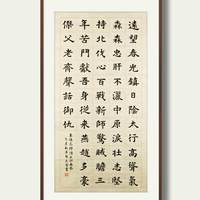 遠望春光鎮日陰太行高聳氣
森森忠肝不灑中原淚壯志堅
持北伐心百戰新師驚賊膽三
年苦鬥獻吾身從來燕趙多豪
傑